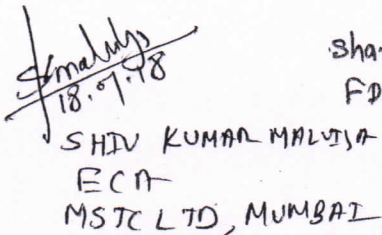 Skmalviya
18.07.18
Sha
FD
SHIV KUMAR MALVIJA
ECA
MSTC LTD, MUMBAI